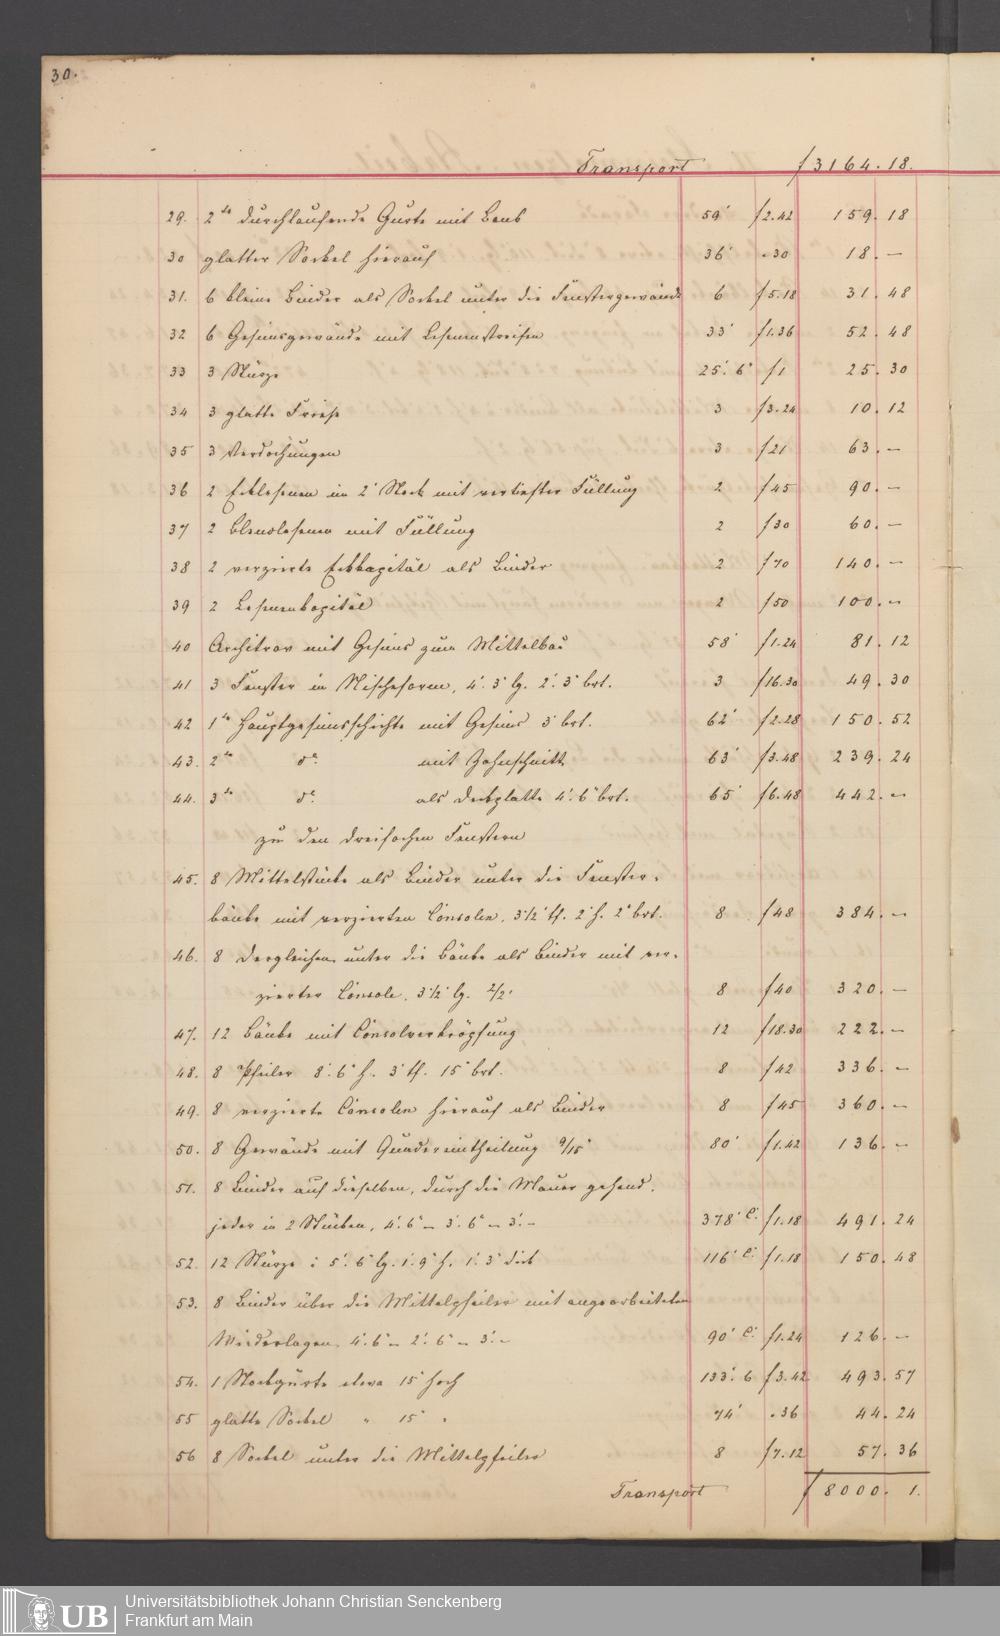 30.
Transport f 3164. 18.
29. 2te durchlaufende Gurte mit Laub 59' f 2.42 159. 18
30 glatter Sockel hierauf 36' „ 30 18. —
31. 6 kleine Binder als Sockel unter die Fenstergewände 6 f 5.18 31. 48
32 6 Gesimsgewände mit Lesenenstreifen 33' f 1.36 52. 48
33 3 Stürze 25'. 6" f 1 25. 30
34 3 glatte Friese 3 f 3.24 10. 12
35 3 Verdachungen 3 f 21 63. —
36 2 Ecklesenen im 2' Stock mit vertiefter Füllung 2 f 45 90. —
37 2 Blendlesenen mit Füllung 2 f 30 60. —
38 2 verzierte Eckkapitäl als Binder 2 f 70 140. —
39 2 Lesenenkapitäl 2 f 50 100. —
40 Architrav mit Gesims zum Mittelbau 58' f 1.24 81. 12
41 3 Fenster in Nischeform, 4'. 3" lg. 2'. 3" brt. 3 f 16.30 49. 30
42 1te Hauptgesimsschichte mit Gesims 3' brt. 62' f 2.28 150. 52
43. 2te do. mit Zahnschnitt 63' f 3.48 239. 24
44. 3te do. als Deckplatte 4'. 6" brt. 65' f 6.48 442. —
zu den dreifachen Fenstern
45. 8 Mittelstücke als Binder unter die Fenster-
bänke mit verzierten Consolen, 3 1/2' tf. 2' h. 2' brt. 8 f 48 384. —
46. 8 dergleichen unter die Bänke als Binder mit ver-
zierter Console, 3 1/2' lg. 2/2' 8 f 40 320. —
47. 12 Bänke mit Consolverkröpfung 12 f 18.30 222. —
48. 8 Pfeiler 8'. 6" h. 3' tf. 15" brt. 8 f 42 336. —
49. 8 verzierte Consolen hierauf als Binder 8 f 45 360. —
50. 8 Gewände mit Quadereintheilung 9/15" 80' f 1.42 136. —
51. 8 Binder auf dieselben, durch die Mauer gehend,
jeder in 2 Stücken, 4'. 6" – 3'. 6" – 3'. – 378' C'. f 1.18 491. 24
52. 12 Stürze : 5'. 6" lg. 1'. 9" h. 1'. 3" dick 116' C'. f 1.18 150. 48
53. 8 Binder über die Mittelpfeiler mit angearbeiteten
Wiederlagen, 4'. 6" – 2'. 6" – 3'. – 90' C'. f 1.24 126. —
54. 1 Stockgurte etwa 15" hoch 133'. 6 f 3.42 493. 57
55 glatte Sockel " 15" " 74' „ 36 44. 24
56 8 Sockel unter die Mittelpfeiler 8 f 7.12 57. 36
Transport f 8000. 1.
UB Universitätsbibliothek Johann Christian Senckenberg
Frankfurt am Main